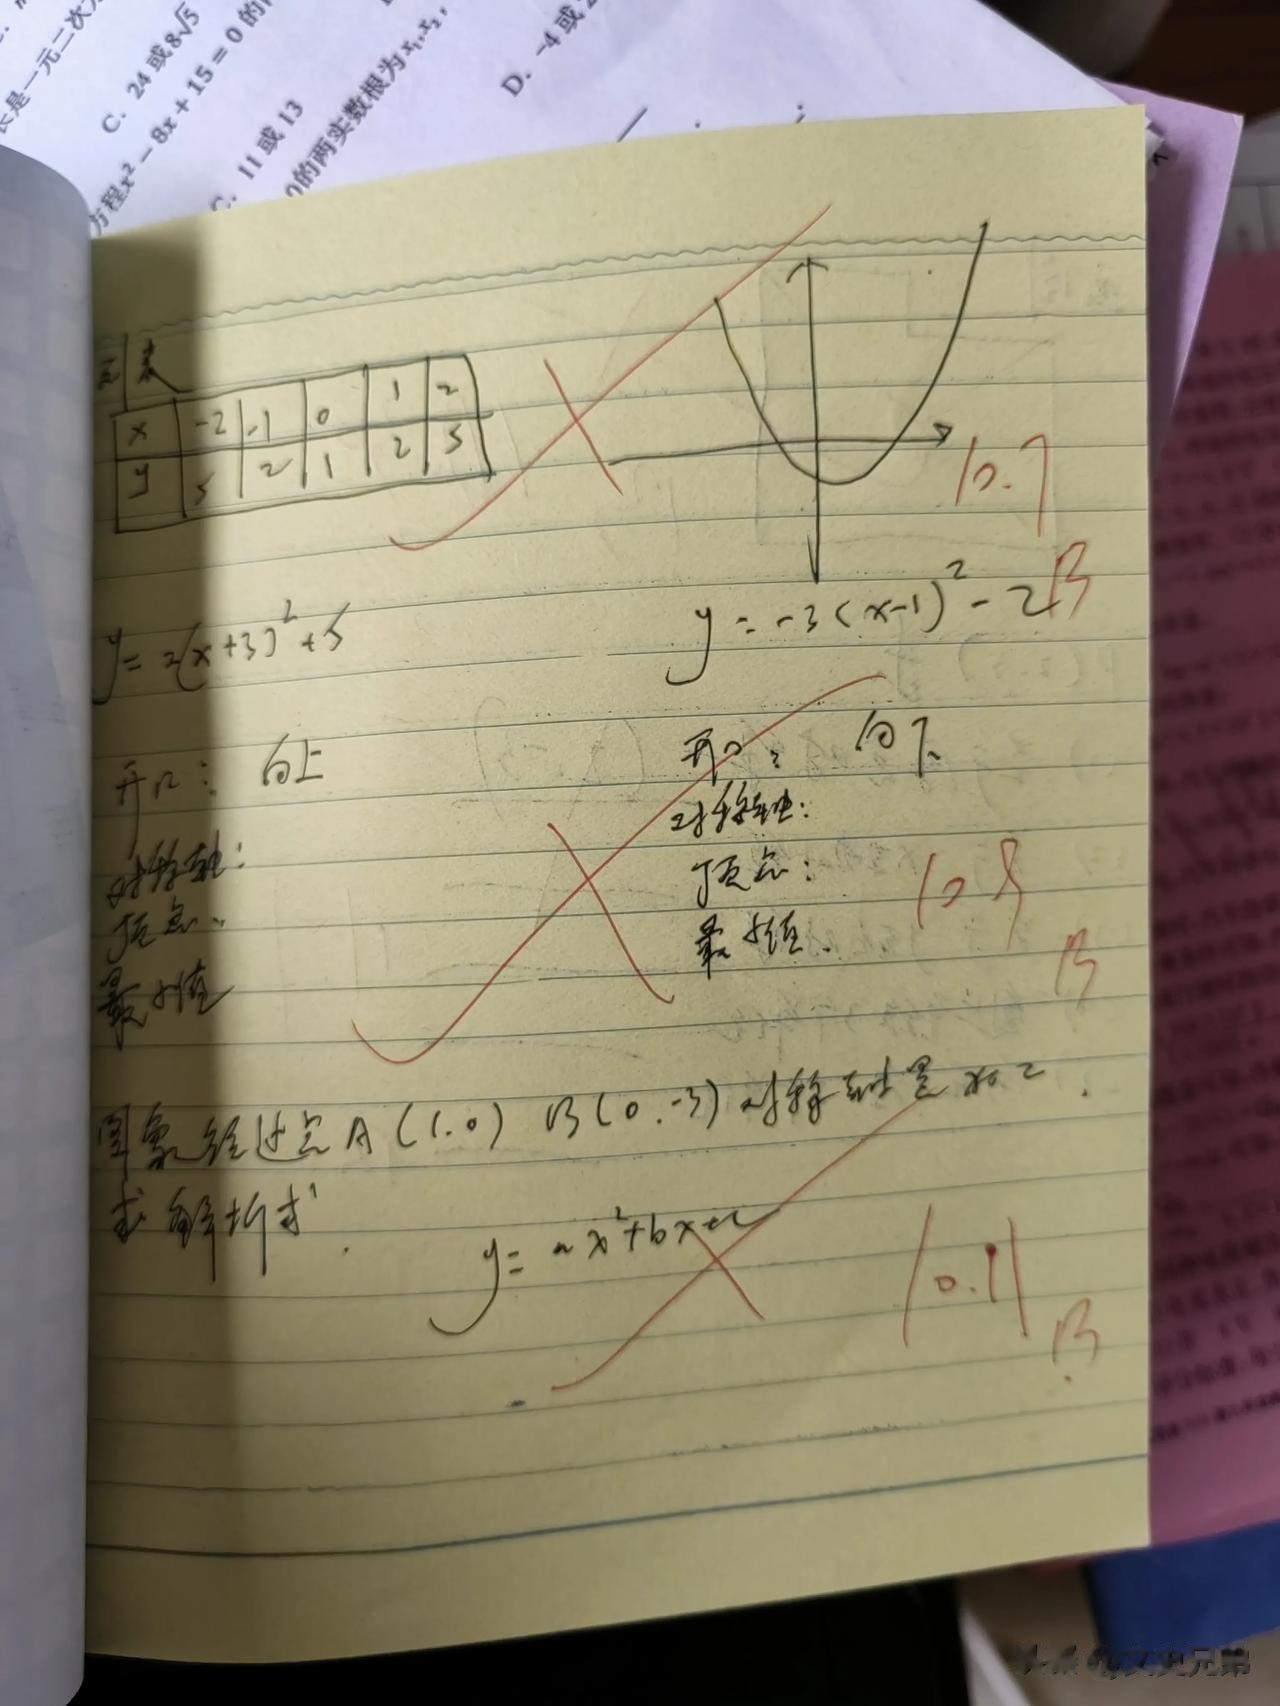 长是一元二次方
C. 24 或 8√5
方程x² − 8x + 15 = 0 的
C. 11 或 13
0的两实数根为 x₁, x₂,
D. −4 或
列表
x -2 -1 0 1 2
y 5 2 1 2 5
10.7
B
y = 2(x+3)² + 5
y = -3(x-1)² - 2
开口: 向上
开口: 向下
对称轴:
对称轴:
顶点:
顶点:
最小值
最小值.
10.9
B
图象经过点A(1.0) B(0.-3) 对称轴是x=2.
求解析式.
y = ax²+bx+c
10.11
B
文史兄弟